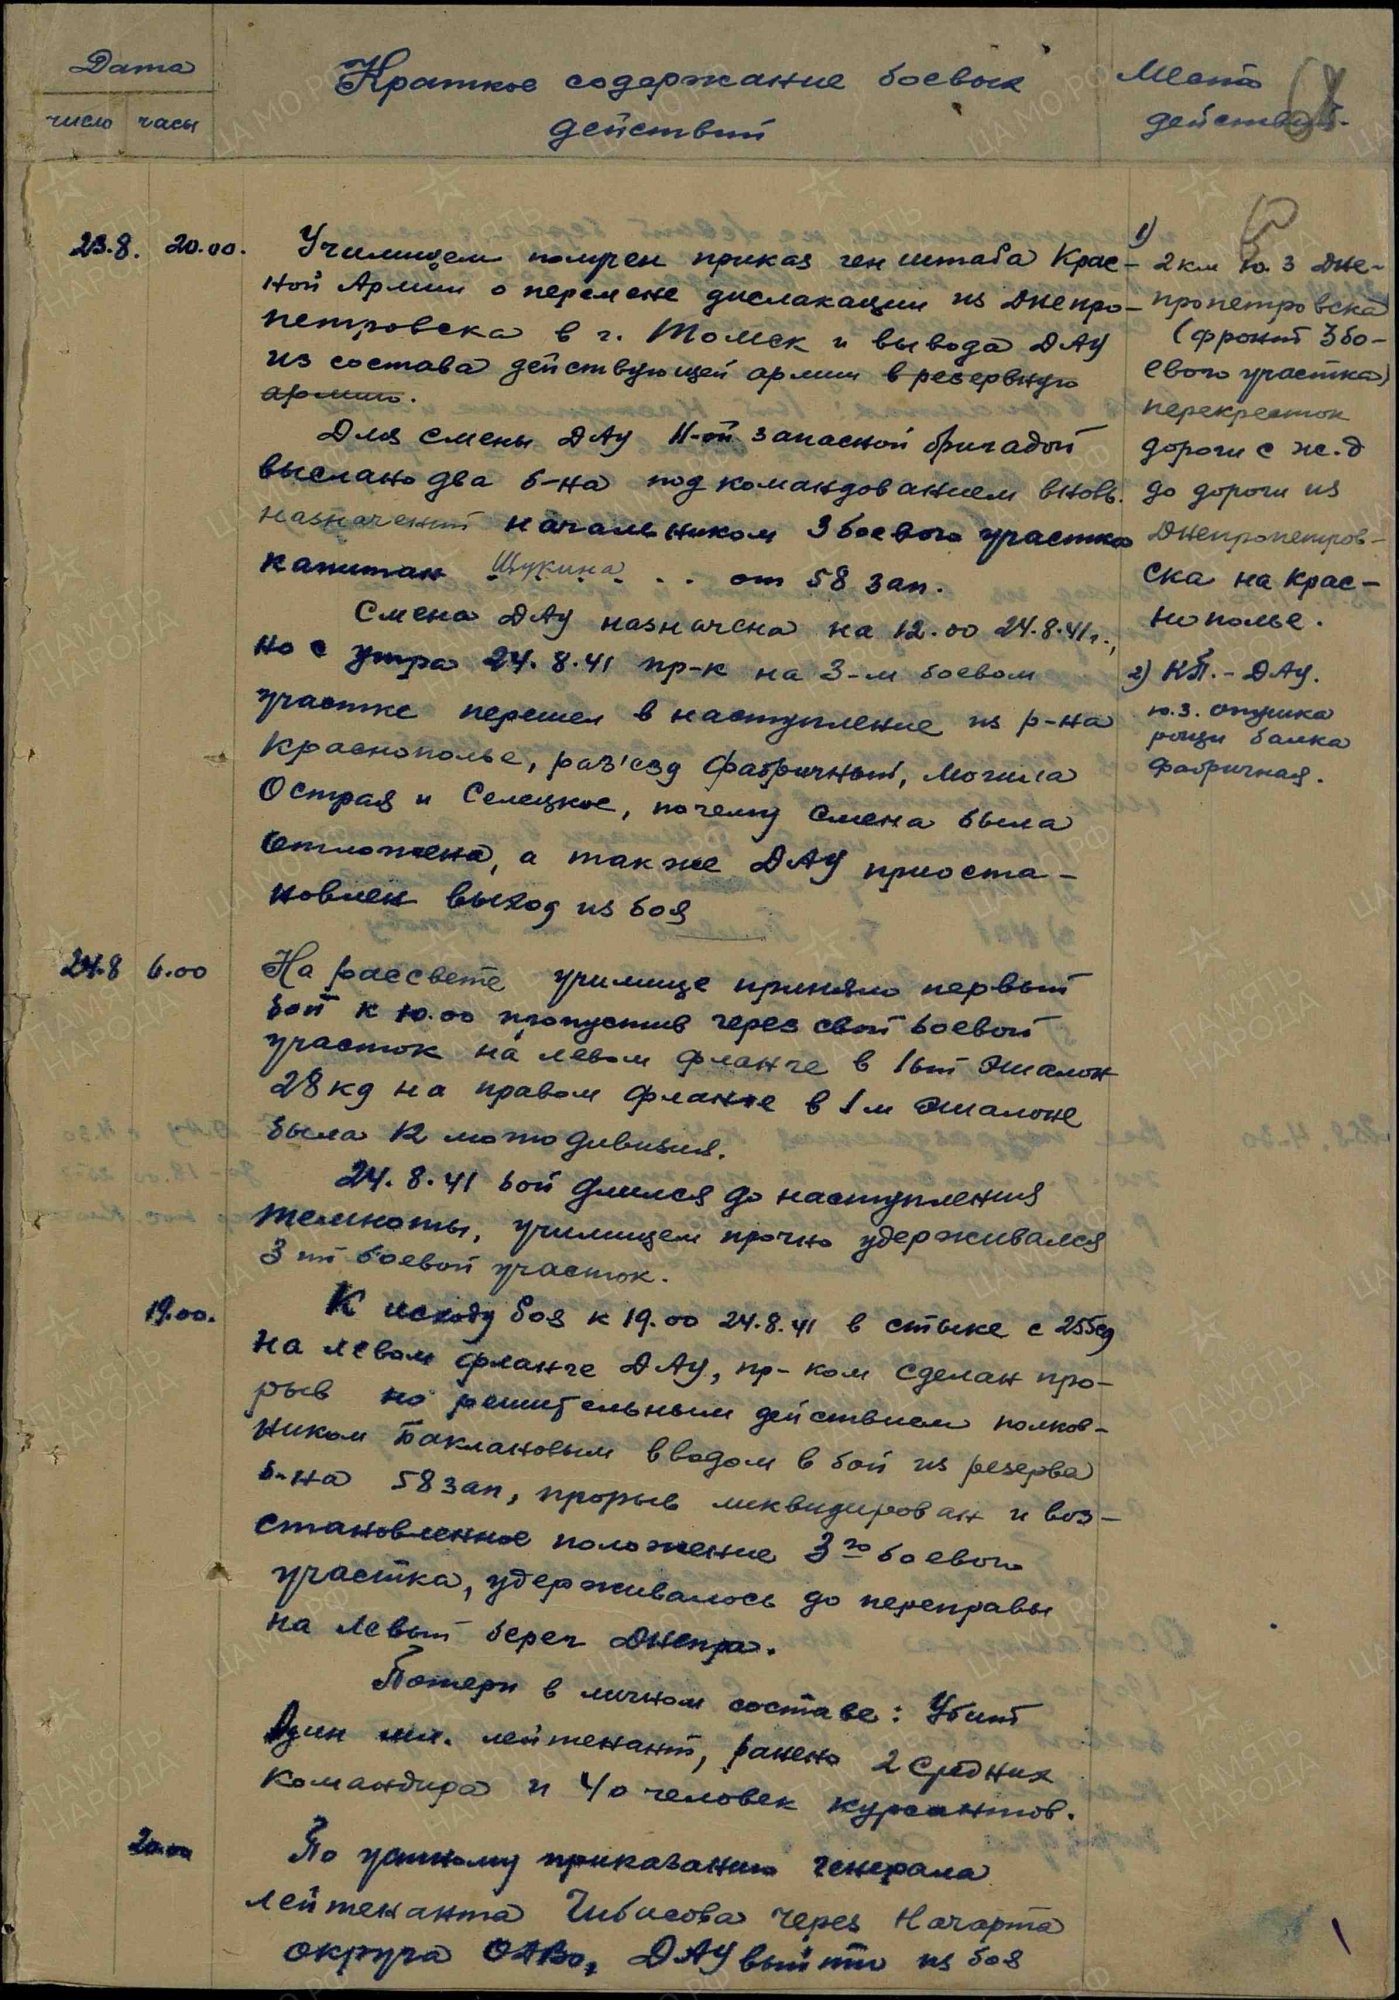 Дата
число часы
Краткое содержание боевых
действий
Место
действий.
23.8. 20.00.
Училищем получен приказ генштаба Крас-
ной Армии о перемене дислакации из Днепро-
петровска в г. Томск и вывода ДАУ
из состава действующей армии в резервную
армию.
Для смены ДАУ 11-ой запасной бригадой
выслано два б-на под командованием вновь
назначенный начальником 3 боевого участка
капитан Щукина . . от 58 зап.
Смена ДАУ назначена на 12.00 24.8.41г.,
но с утра 24.8.41 пр-к на 3-м боевом
участке перешел в наступление из р-на
Краснополье, раз'езд Фабричный, Могила
Острая и Селецкое, почему смена была
отложена, а также ДАУ приоста-
новлен выход из боя
1)
2 км ю.з Дне-
пропетровска
(фронт 3 бо-
евого участка)
перекресток
дороги с ж.д
до дороги из
Днепропетров-
ска на Крас-
нополье.
2) КП.- ДАУ.
ю.з. опушка
рощи балка
Фабричная.
24.8 6.00
На рассвете училище приняло первый
бой к 10.00 пропустив через свой боевой
участок на левом фланге в 1ый эшалон
28 кд на правом фланге в 1м эшалоне
была 12 мотодивизия.
24.8.41 бой длился до наступления
темноты, училищем прочно удерживался
3ий боевой участок.
19.00.
К исходу боя к 19.00 24.8.41 в стыке с 255сд
на левом фланге ДАУ, пр-ком сделан про-
рыв но решительным действием полков-
ником Баклановым вводом в бой из резерва
б-на 58 зап, прорыв ликвидирован и вос-
становленное положение 3го боевого
участка, удерживалось до переправы
на левый берег Днепра.
Потери в личном составе: Убит
Один мл. лейтенант, ранено 2 средних
командира и 40 человек курсантов.
20.00
По устному приказанию генерала
лейтенанта Чибисова через Начарта
округа ОДВо, ДАУ выйти из боя